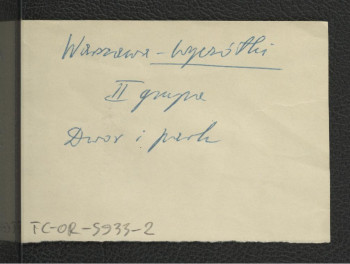 Warszawa - Wyczółki
II grupa
Dwór i park
TC-OR-5933-2